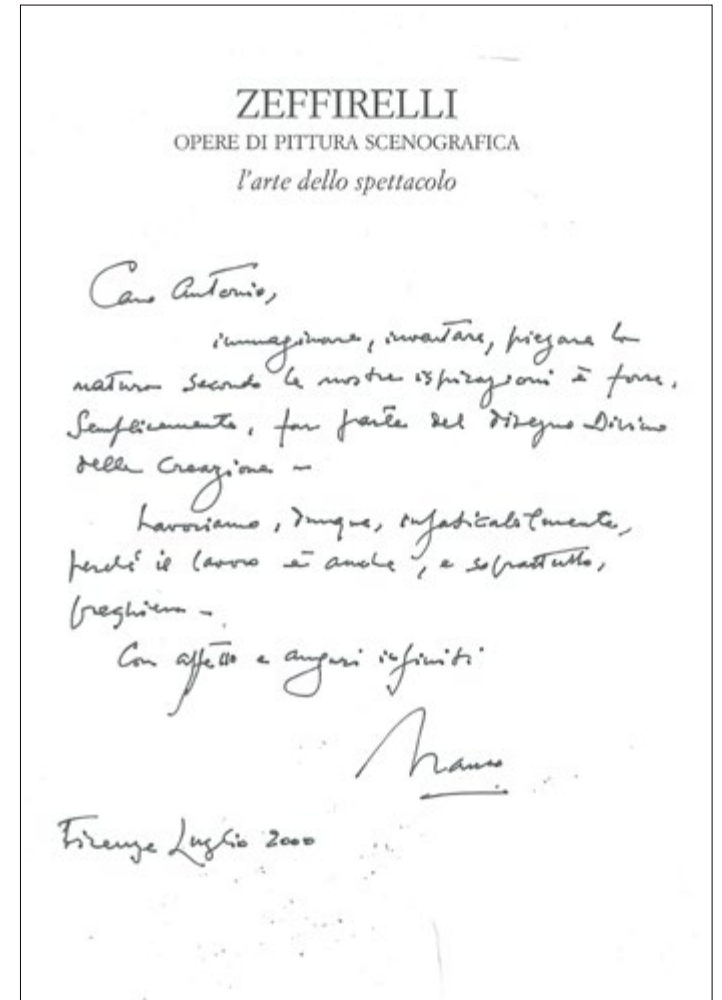 ZEFFIRELLI
OPERE DI PITTURA SCENOGRAFICA
l'arte dello spettacolo
Caro Antonio,
immaginare, inventare, piegare la
natura secondo le nostre ispirazioni è forse,
semplicemente, far parte del disegno Divino
della Creazione –
Lavoriamo, dunque, infaticabilmente,
perché il lavoro è anche, e soprattutto,
preghiera –
Con affetto e auguri infiniti
Franco
Firenze Luglio 2000